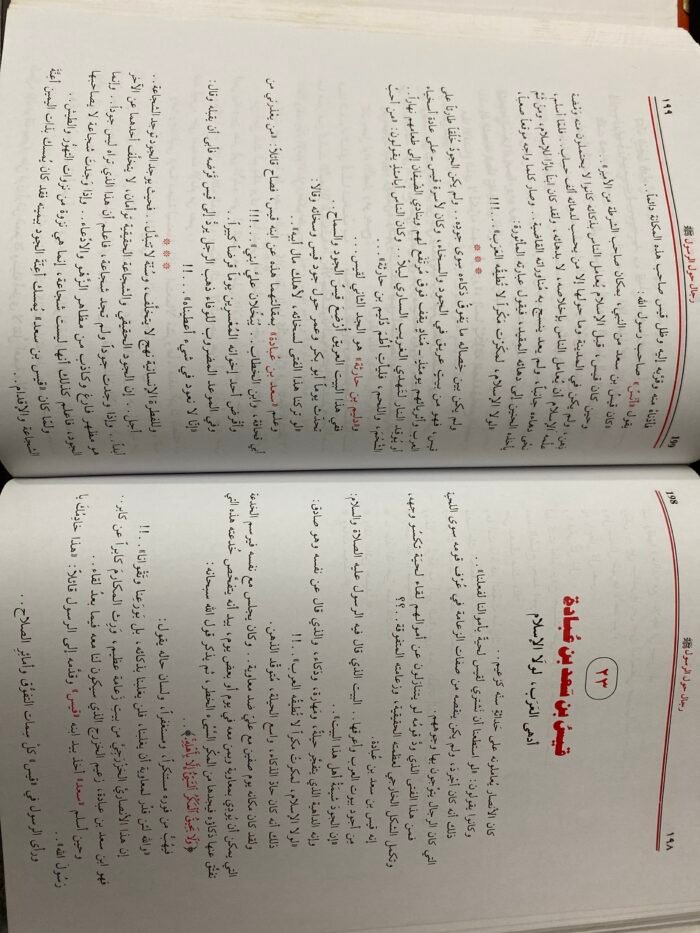 رجال حول الرسول ﷺ
198
١٩٨
٢٣
قيس بن سعد بن عبادة
أدهى العرب، لولا الإسلام
كان الأنصار يعاملونه على حداثة سنه كزعيم...
وكانوا يقولون: «لو استطعنا أن نشتري لقيس لحية بأموالنا لفعلنا»...
ذلك أنه كان أجرد، ولم يكن ينقصه من صفات الزعامة في عرف قومه سوى اللحية
التي كان الرجال يتوجون بها وجوههم.
فمن هذا الفتى الذي ود قومه لو يتنازلون عن أموالهم لقاء لحية تكسو وجهه،
وتكمل الشكل الخارجي لعظمته الحقيقية، وزعامته المتفوقة..؟؟
إنه قيس بن سعد بن عبادة.
من أجود بيوت العرب وأعرقها.. البيت الذي قال فيه الرسول عليه الصلاة والسلام:
«إن الجود شيمة أهل هذا البيت»...
وإنه الداهية الذي يتفجر حيلة، ومهارة، وذكاء، والذي قال عن نفسه وهو صادق:
«لولا الإسلام، لمكرت مكراً لا تطيقه العرب»..!!
ذلك أنه كان حاد الذكاء، واسع الحيلة، متوقد الذهن.
ولقد كان مكانه يوم صفين مع علي ضد معاوية.. وكان يجلس مع نفسه فيرسم الخدعة
التي يمكن أن يودي بمعاوية وبمن معه في يوم أو بعض يوم، بيد أنه يتفحص خدعته هذه التي
تفتق عنها ذكاؤه فيجدها من المكر السيئ الخطر، ثم يذكر قول الله سبحانه:
﴿وَلَا يَحِيقُ الْمَكْرُ السَّيِّئُ إِلَّا بِأَهْلِهِ﴾...
فيهب من فوره مستنكراً، ومستغفراً، ولسان حاله يقول:
«والله لئن قدر لمعاوية أن يغلبنا، فلن يغلبنا بذكائه، بل بورعنا وتقوانا»..!!
إن هذا الأنصاري الخزرجي من بيت زعامة عظيم، ورث المكارم كابراً عن كابر..
فهو ابن سعد بن عبادة، زعيم الخزرج الذي سيكون لنا معه فيما بعد لقاء..
وحين أسلم «سعد» أخذ بيد ابنه «قيس» وقدمه إلى الرسول قائلاً: «هذا خادمك يا
رسول الله»...
ورأى الرسول في «قيس» كل سمات التفوق وأمائر الصلاح..
رجال حول الرسول ﷺ
199
١٩٩
فأدناه منه وقربه إليه وظل قيس صاحب هذه المكانة دائماً..
يقول «أنس» صاحب رسول الله:
«كان قيس بن سعد من النبي، بمكان صاحب الشرطة من الأمير»..
وحين كان قيس، قبل الإسلام يعامل الناس بذكائه كانوا لا يحتملون منه ومضة
ذهن، ولم يكن في المدينة وما حولها إلا من يحسب لدهائه ألف حساب.. فلما أسلم،
علمه الإسلام أن يعامل الناس بإخلاصه، لا بدهائه، ولقد كان ابناً باراً للإسلام، ومن ثم
نحى دهاءه جانباً، ولم يعد ينسج به مناوراته القاضية.. وصار كلما واجه موقفاً صعباً،
يأخذه الحنين إلى دهائه المقيد، فيقول عبارته المأثورة:
«لولا الإسلام، لمكرت مكراً لا تطيقه العرب»..!!!
***
ولم يكن بين خصاله ما يفوق ذكاءه سوى جوده.. ولم يكن الجود خلقاً طارئاً على
قيس، فهو من بيت عريق في الجود والسخاء، وكان لأسرة قيس - على عادة أسخياء
العرب وأثريائهم يومئذ - مناد يقف فوق مرتفع لهم وينادي الضيفان إلى طعامهم نهاراً..
أو يوقد النار لتهدي الغريب الساري ليلاً.. وكان الناس أيامئذ يقولون: «من أحب
الشحم، واللحم، فليأت أطم دليم بن حارثة»...
و«دليم بن حارثة» هو الجد الثاني لقيس..
ففي هذا البيت العريق أرضع قيس الجود والسماح..
تحدث يوماً أبو بكر وعمر حول جود قيس وسخائه وقالا:
«لو تركنا هذا الفتى لسخائه، لأهلك مال أبيه»..
وعلم «سعد بن عبادة» بمقالتهما هذه عن ابنه قيس، فصاح قائلاً: «من يعذرني من
أبي قحافة، وابن الخطاب.. يبخلان علي ابني»..!!!
وأقرض أحد إخوانه المعسرين يوماً قرضاً كبيراً..
وفي الموعد المضروب للوفاء ذهب الرجل يرد إلى قيس قرضه فأبى أن يقبله وقال:
«إنا لا نعود في شيء أعطيناه»..!!
***
وللفطرة الإنسانية نهج لا يتخلف، وسنة لا تتبدل.. فحيث يوجد الجود توجد الشجاعة..
أجل.. إن الجود الحقيقي والشجاعة الحقيقية توأمان، لا يتخلف أحدهما عن الآخر
أبداً.. وإذا وجدت جوداً ولم تجد شجاعة، فاعلم أن هذا الذي تراه ليس جوداً.. وإنما
هو مظهر فارغ وكاذب من مظاهر الزهو والادعاء.. وإذا وجدت شجاعة لا يصاحبها
الجود، فاعلم كذلك أنها ليست شجاعة، إنما هي نزوة من نزوات التهور والطيش..
ولما كان «قيس بن سعد» يمسك أعنة الجود بيمينه فقد كان يمسك بذات اليمين أعنة
الشجاعة والإقدام..